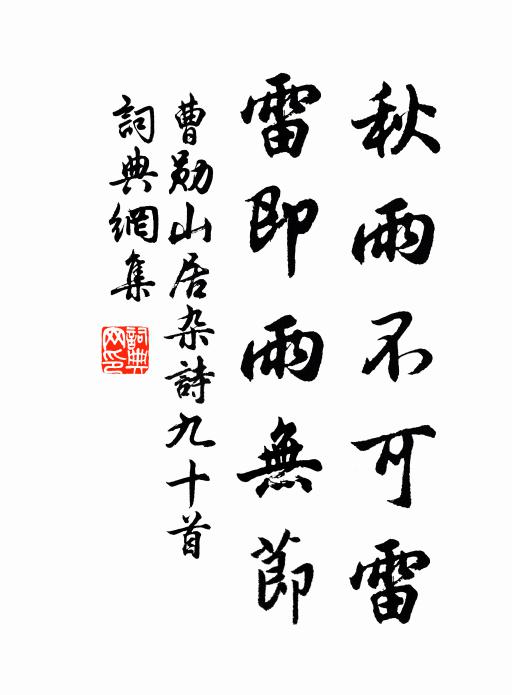 秋雨不可雷
雷即雨無節
曹勛山居杂詩九十首
詞典網集
詞典網印